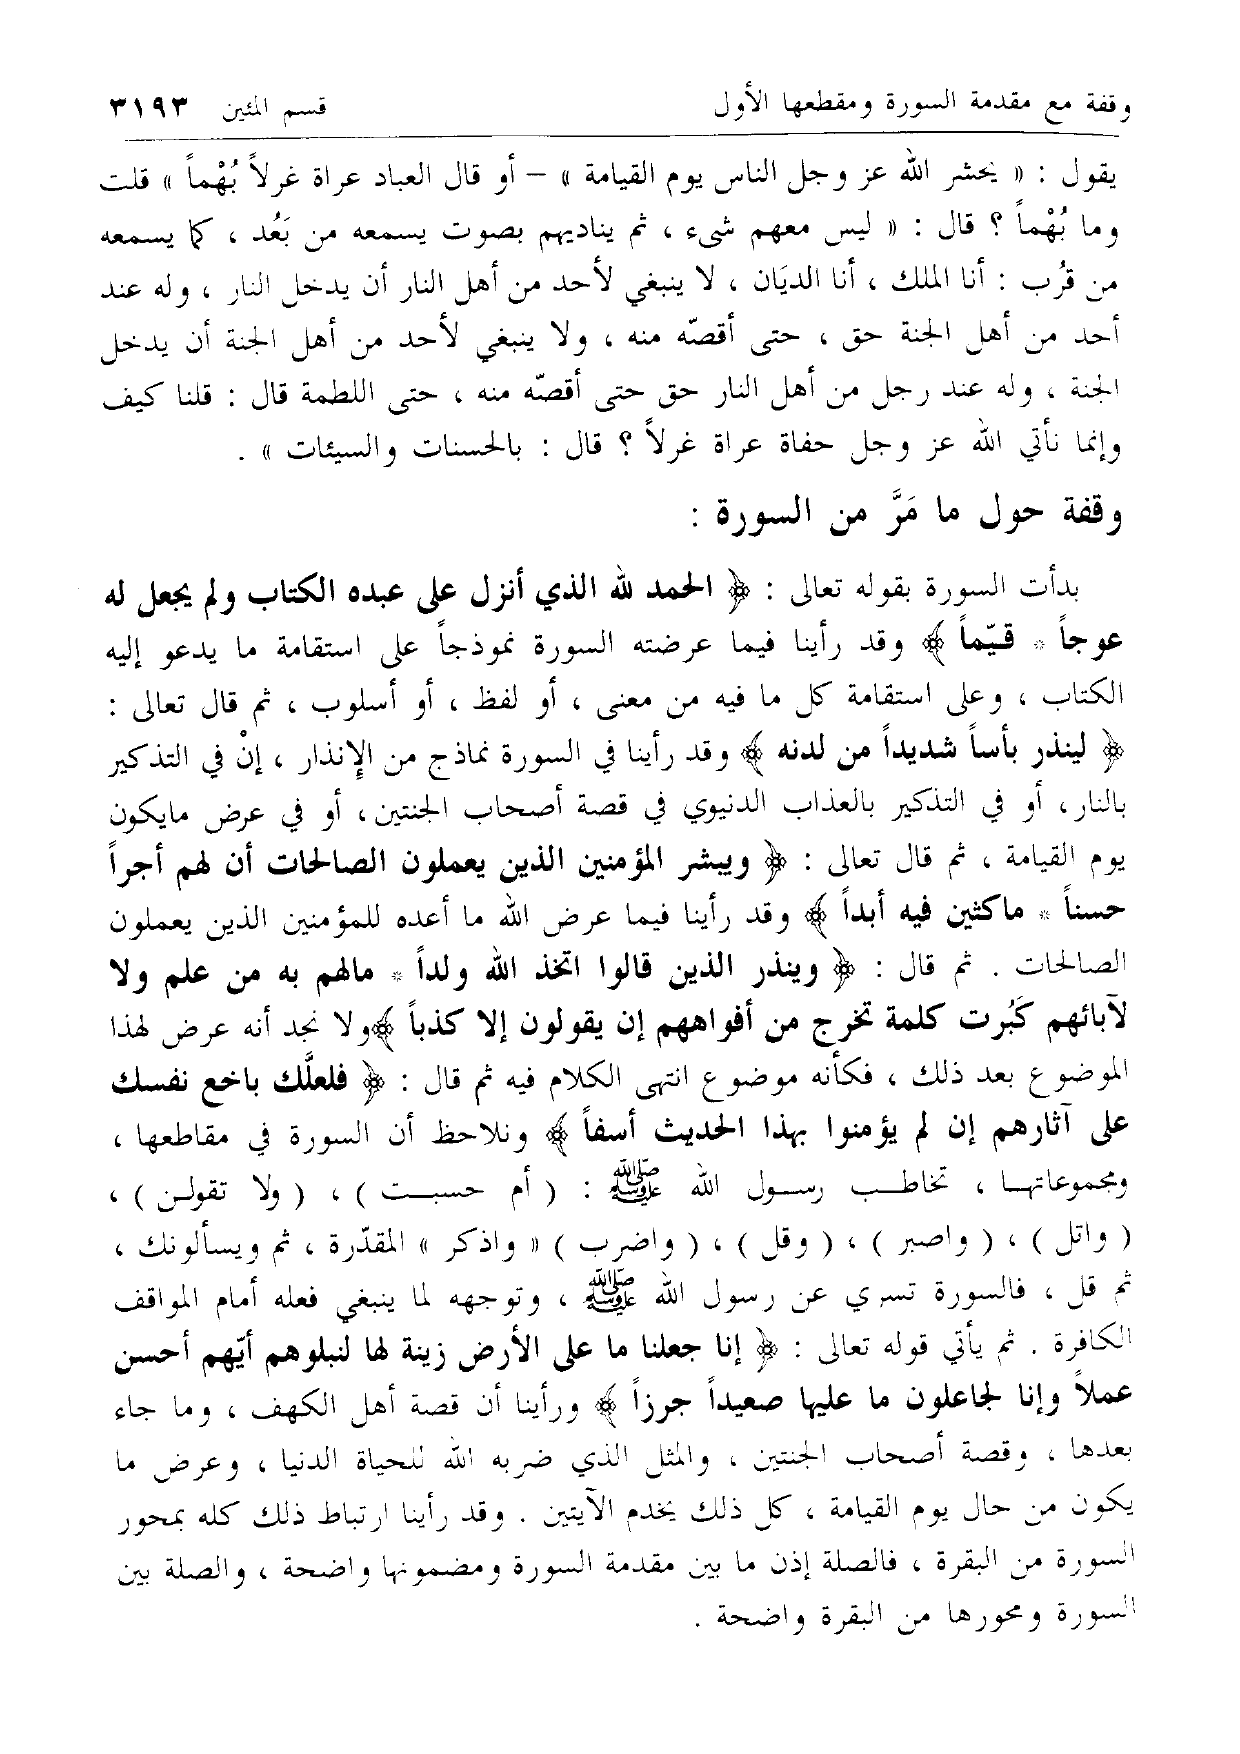 وقفة مع مقدمة السورة ومقطعها الأول قسم المئين ٣١٩٣
يقول : « يحشر الله عز وجل الناس يوم القيامة » – أو قال العباد عراة غرلاً بُهْماً » قلت
وما بُهْماً ؟ قال : « ليس معهم شىء ، ثم يناديهم بصوت يسمعه من بَعُد ، كما يسمعه
من قرُب : أنا الملك ، أنا الديَان ، لا ينبغي لأحد من أهل النار أن يدخل النار ، وله عند
أحد من أهل الجنة حق ، حتى أقصّه منه ، ولا ينبغي لأحد من أهل الجنة أن يدخل
الجنة ، وله عند رجل من أهل النار حق حتى أقصّه منه ، حتى اللطمة قال : قلنا كيف
وإنما نأتي الله عز وجل حفاة عراة غرلاً ؟ قال : بالحسنات والسيئات » .
وقفة حول ما مَرَّ من السورة :
بدأت السورة بقوله تعالى : ﴿ الحمد لله الذي أنزل على عبده الكتاب ولم يجعل له
عوجاً * قيّماً ﴾ وقد رأينا فيما عرضته السورة نموذجاً على استقامة ما يدعو إليه
الكتاب ، وعلى استقامة كل ما فيه من معنى ، أو لفظ ، أو أسلوب ، ثم قال تعالى :
﴿ لينذر بأساً شديداً من لدنه ﴾ وقد رأينا في السورة نماذج من الإنذار ، إنْ في التذكير
بالنار، أو في التذكير بالعذاب الدنيوي في قصة أصحاب الجنتين، أو في عرض مايكون
يوم القيامة ، ثم قال تعالى : ﴿ ويبشر المؤمنين الذين يعملون الصالحات أن لهم أجراً
حسناً * ماكثين فيه أبداً ﴾ وقد رأينا فيما عرض الله ما أعده للمؤمنين الذين يعملون
الصالحات . ثم قال : ﴿ وينذر الذين قالوا اتخذ الله ولداً * مالهم به من علم ولا
لآبائهم كَبُرت كلمة تخرج من أفواههم إن يقولون إلا كذباً ﴾ولا نجد أنه عرض لهذا
الموضوع بعد ذلك ، فكأنه موضوع انتهى الكلام فيه ثم قال : ﴿ فلعلَّك باخع نفسك
على آثارهم إن لم يؤمنوا بهذا الحديث أسفاً ﴾ ونلاحظ أن السورة في مقاطعها ،
ومجموعاتها ، تخاطب رسول الله ﷺ : ( أم حسبت ) ، ( ولا تقولن ) ،
( واتل ) ، ( واصبر ) ، ( وقل ) ، ( واضرب ) « واذكر » المقدّرة ، ثم ويسألونك ،
ثم قل ، فالسورة تسري عن رسول الله ﷺ ، وتوجهه لما ينبغي فعله أمام المواقف
الكافرة . ثم يأتي قوله تعالى : ﴿ إنا جعلنا ما على الأرض زينة لها لنبلوهم أيّهم أحسن
عملاً وإنا لجاعلون ما عليها صعيداً جرزاً ﴾ ورأينا أن قصة أهل الكهف ، وما جاء
بعدها ، وقصة أصحاب الجنتين ، والمثل الذي ضربه الله للحياة الدنيا ، وعرض ما
يكون من حال يوم القيامة ، كل ذلك يخدم الآيتين . وقد رأينا ارتباط ذلك كله بمحور
السورة من البقرة ، فالصلة إذن ما بين مقدمة السورة ومضمونها واضحة ، والصلة بين
السورة ومحورها من البقرة واضحة .